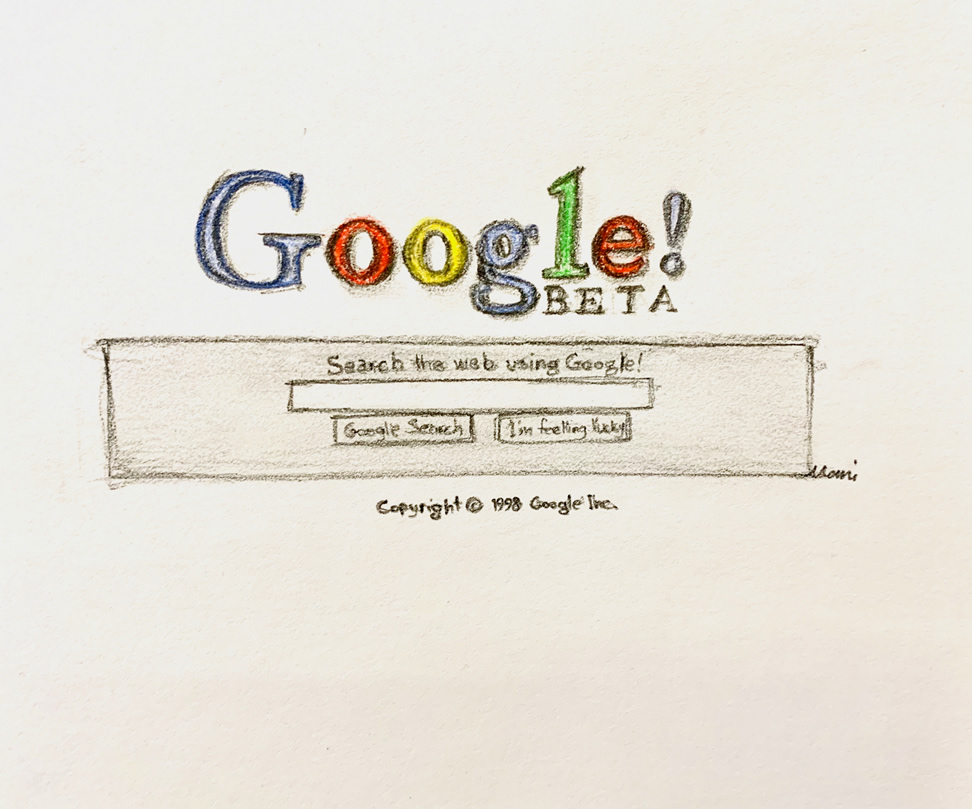 Google!
BETA
Search the web using Google!
Google Search I'm feeling lucky
Copyright © 1998 Google Inc.